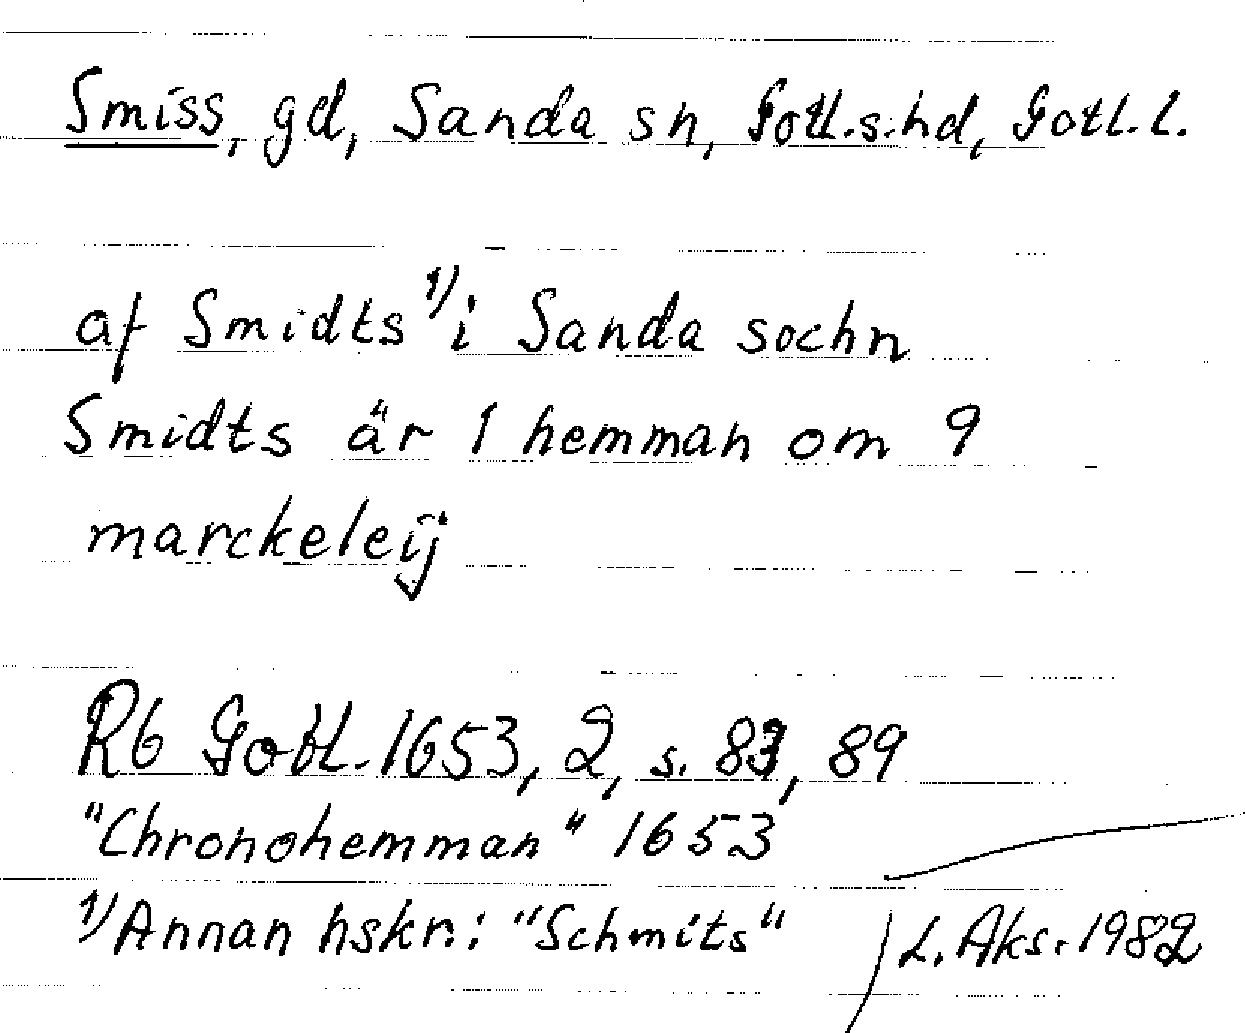 Smiss, gd, Sanda sn, Gotl.s:hd, Gotl.l.
af Smidts 1) i Sanda sochn
Smidts är 1 hemman om 9
marckeleij
Rb Gotl. 1653, 2, s. 83, 89
"Chronohemman" 1653
1) Annan hskr: "Schmits"
L. Aks. 1982